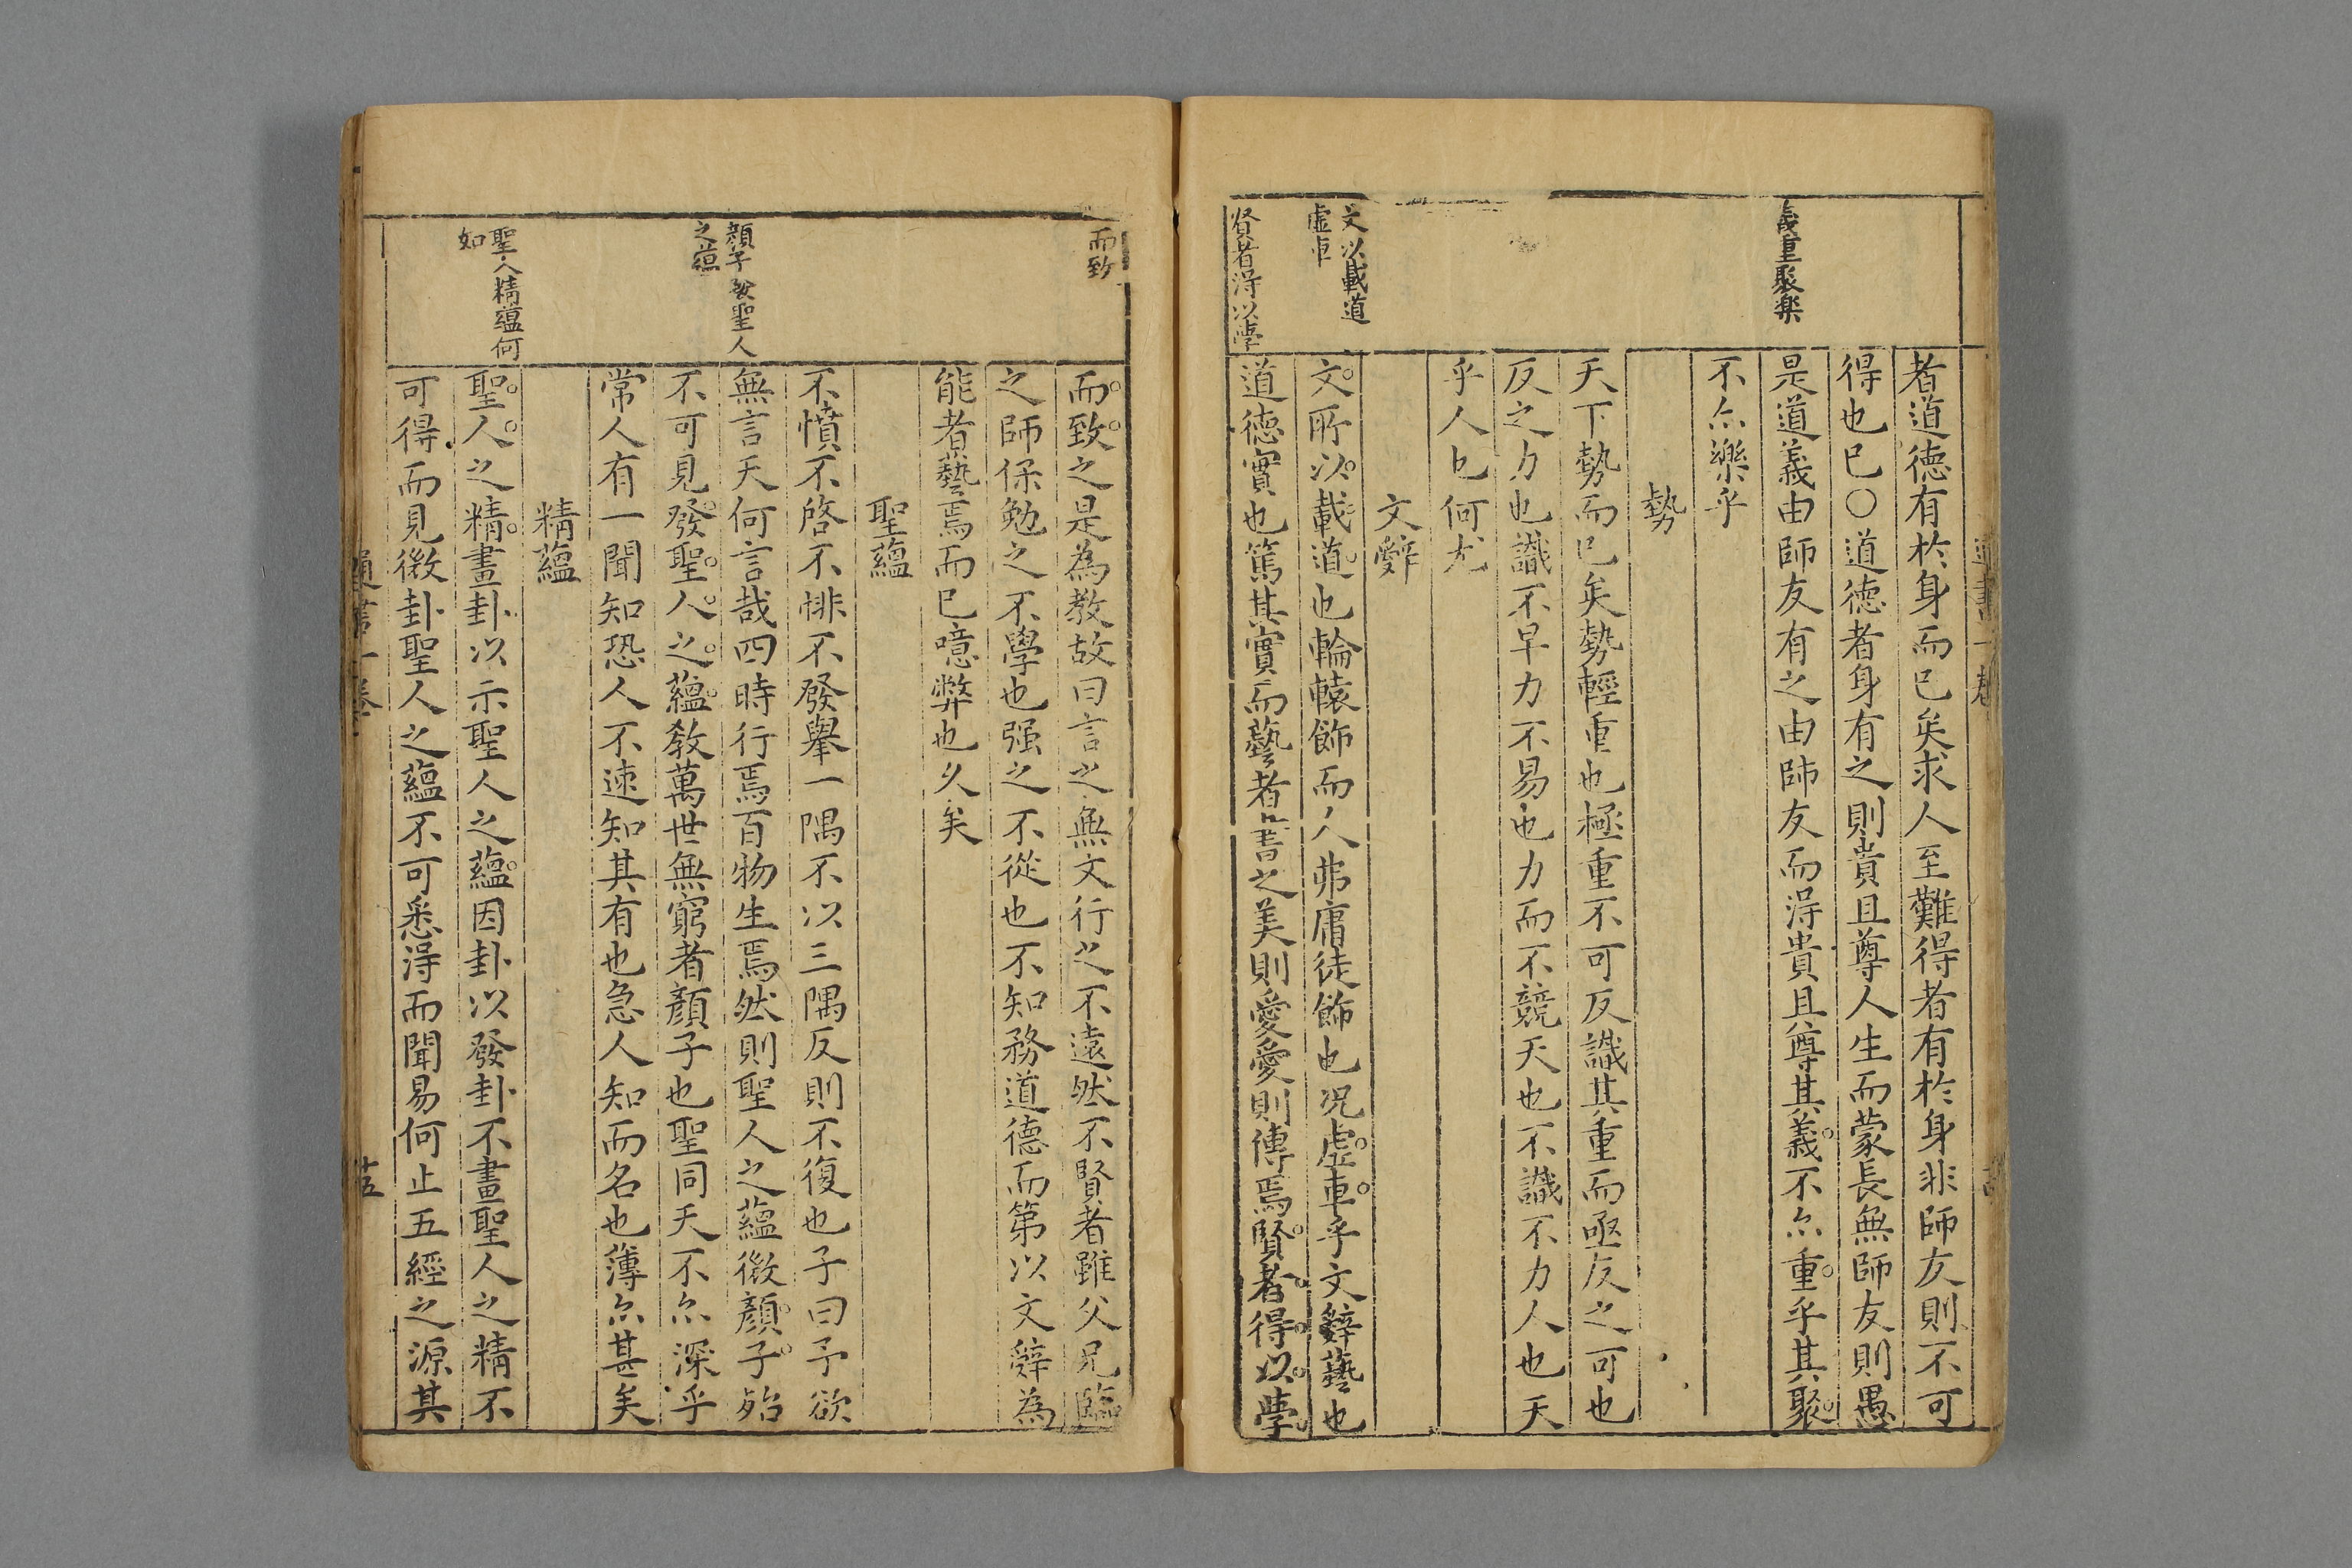 義重聚樂
文以載道
虛車
賢者得以學
者道德有於身而已矣求人至難得者有於身非師友則不可
得也已○道德者身有之則貴且尊人生而蒙長無師友則愚
是道義由師友有之由師友而得貴且尊其義不亦重乎其聚
不亦樂乎
勢
天下勢而已矣勢輕重也極重不可反識其重而亟反之可也
反之力也識不早力不易也力而不競天也不識不力人也天
乎人也何尤
文辭
文所以載道也輪轅飾而人弗庸徒飾也况虛車乎文辭藝也
道德實也篤其實而藝者書之美則愛愛則傳焉賢者得以學
而致
顏子發聖人
之蘊
聖人精蘊何
如
而致之是為教故曰言之無文行之不遠然不賢者雖父兄臨
之師保勉之不學也强之不從也不知務道德而第以文辭為
能者藝焉而已噫弊也久矣
聖蘊
不憤不啓不悱不發舉一隅不以三隅反則不復也子曰予欲
無言天何言哉四時行焉百物生焉然則聖人之蘊微顏子殆
不可見發聖人之蘊教萬世無窮者顏子也聖同天不亦深乎
常人有一聞知恐人不速知其有也急人知而名也薄亦甚矣
精蘊
聖人之精畫卦以示聖人之蘊因卦以發卦不畫聖人之精不
可得而見微卦聖人之蘊不可悉得而聞易何止五經之源其